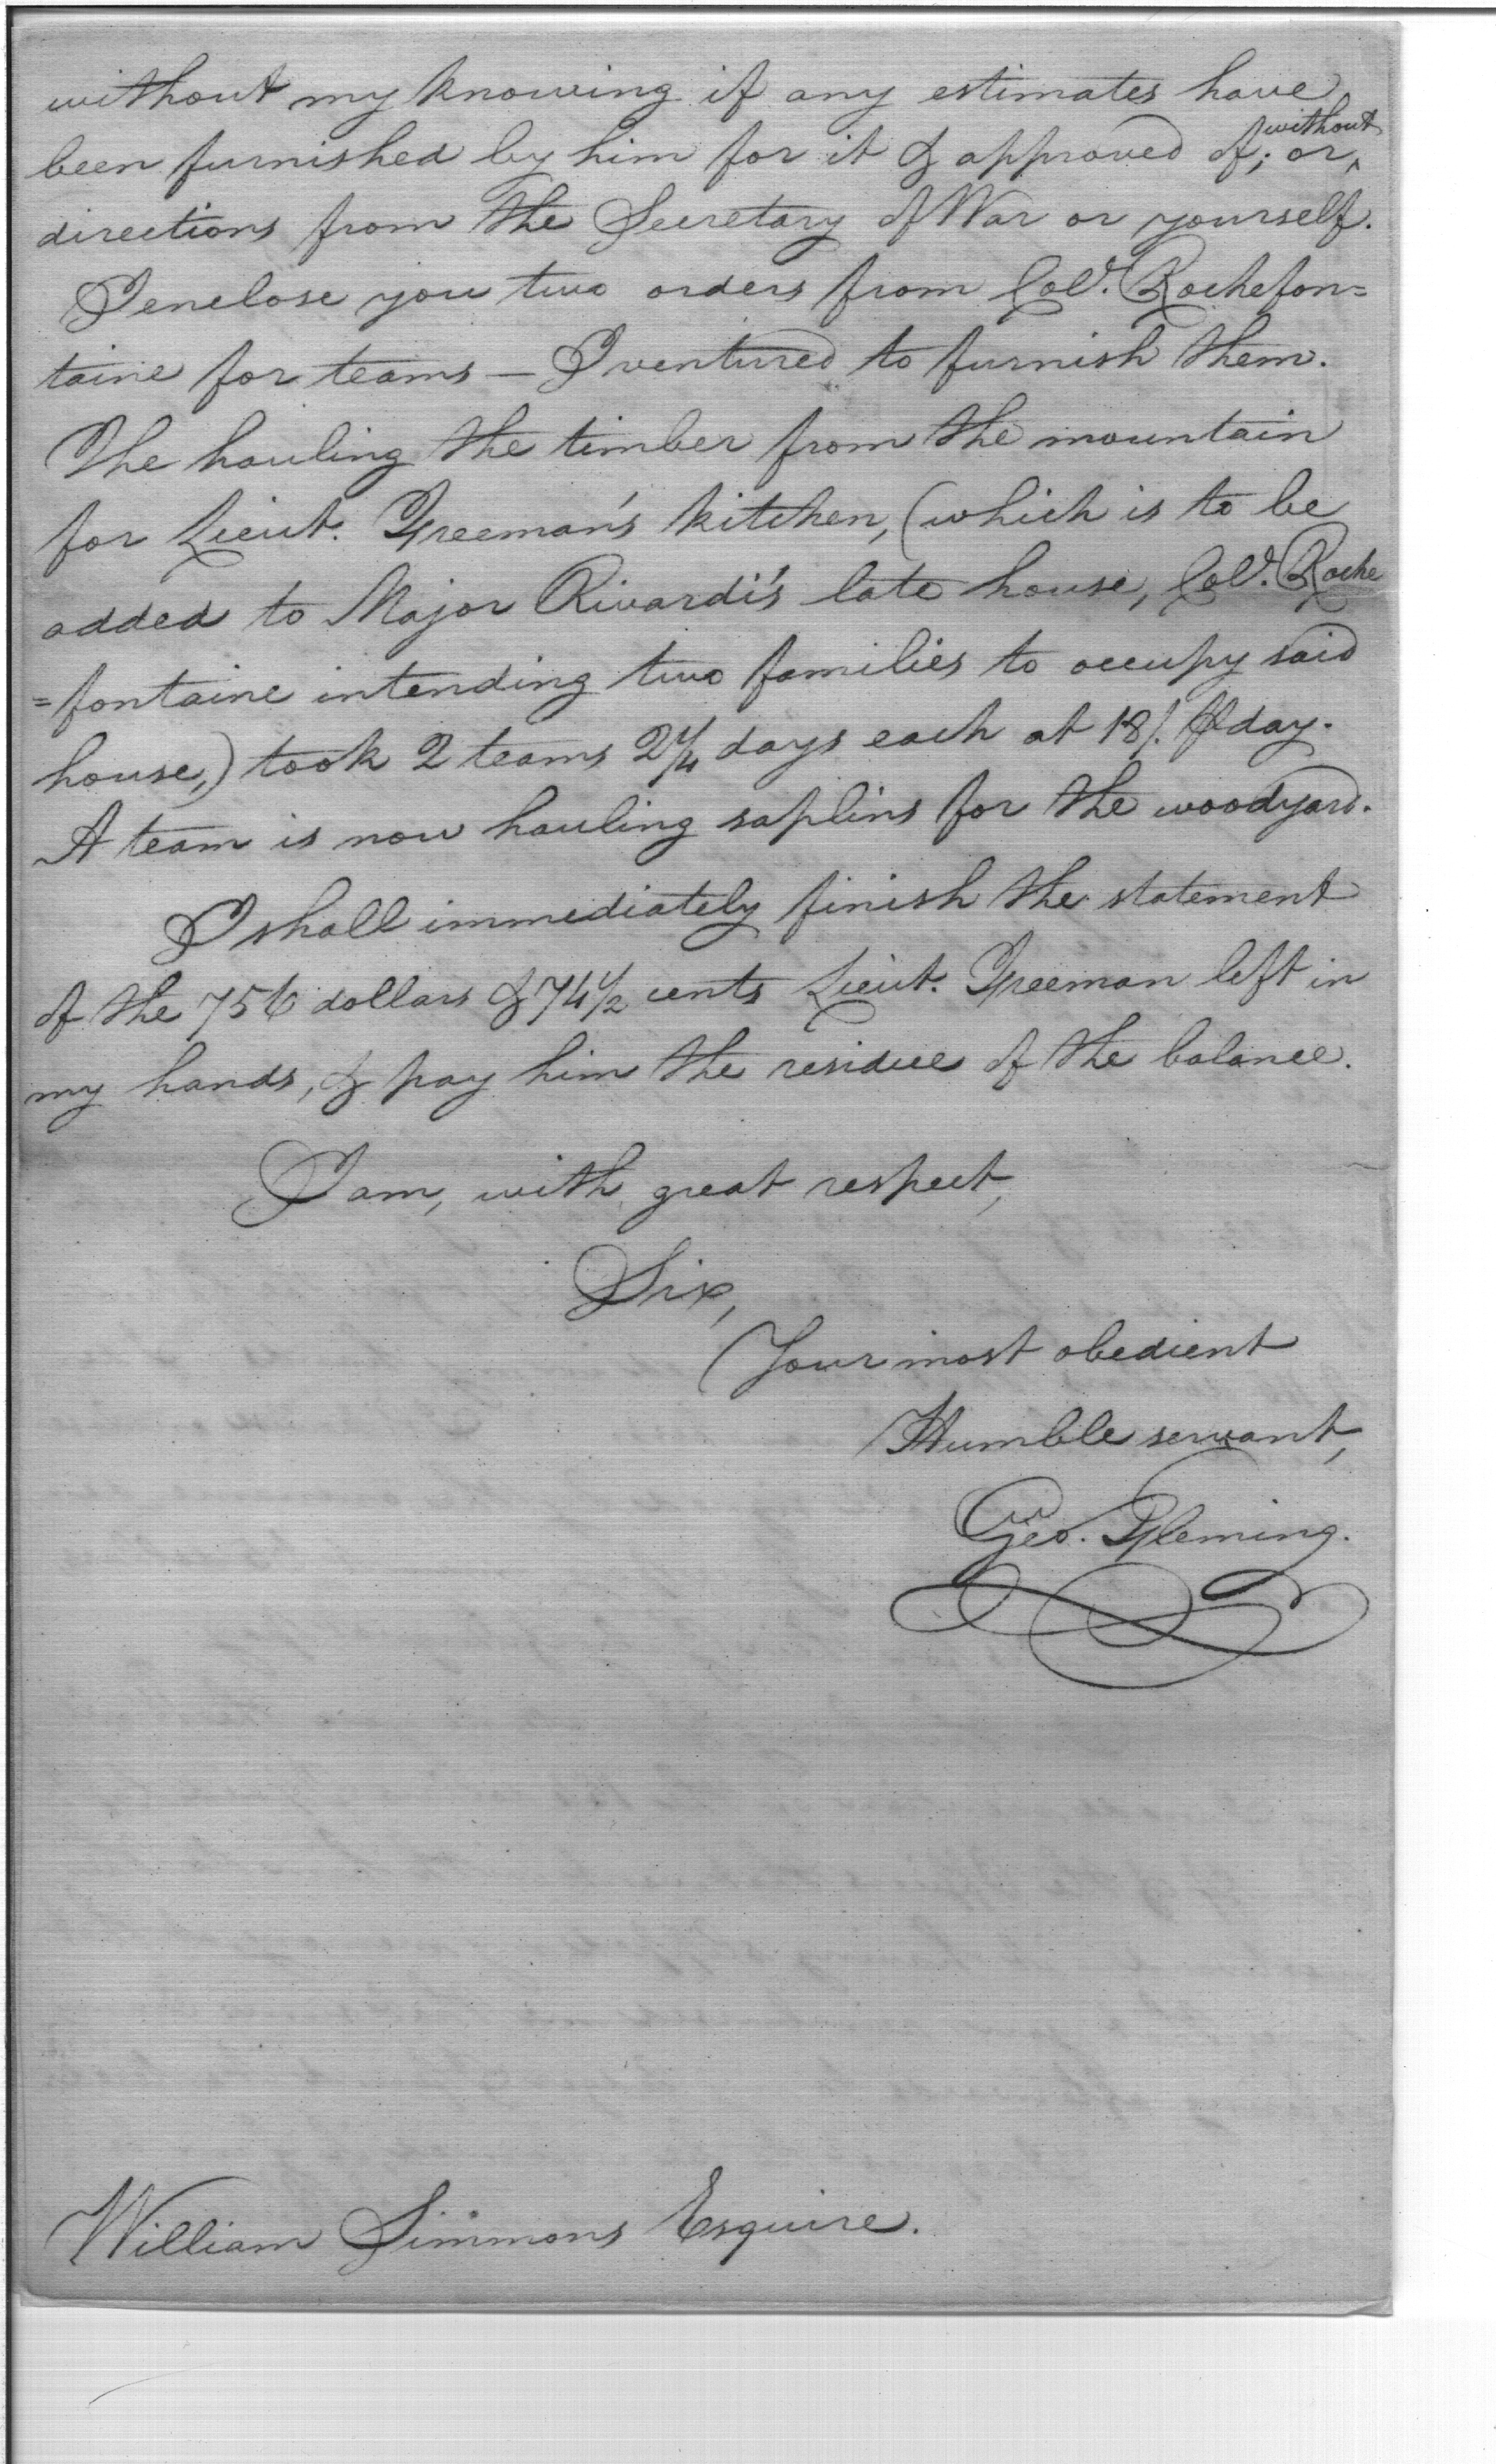 without my knowing if any estimates have
been furnished by him for it & approved of; or, without
directions from the Secretary of War or yourself.
I enclose you two orders from Col. Rochefon=
taine for teams — I ventured to furnish them.
The hauling the timber from the mountain
for Lieut. Freeman's kitchen, (which is to be
added to Major Rivardi's late house, Col. Roche
=fontaine intending two families to occupy said
house,) took 2 teams 2 1/4 days each at 18/. ⅌ day.
A team is now hauling saplins for the woodyard.
I shall immediately finish the statement
of the 756 dollars & 74 1/2 cents Lieut. Freeman left in
my hands, & pay him the residue of the balance.
I am, with great respect,
Sir,
Your most obedient
Humble servant,
Geo. Fleming.
William Simmons Esquire.